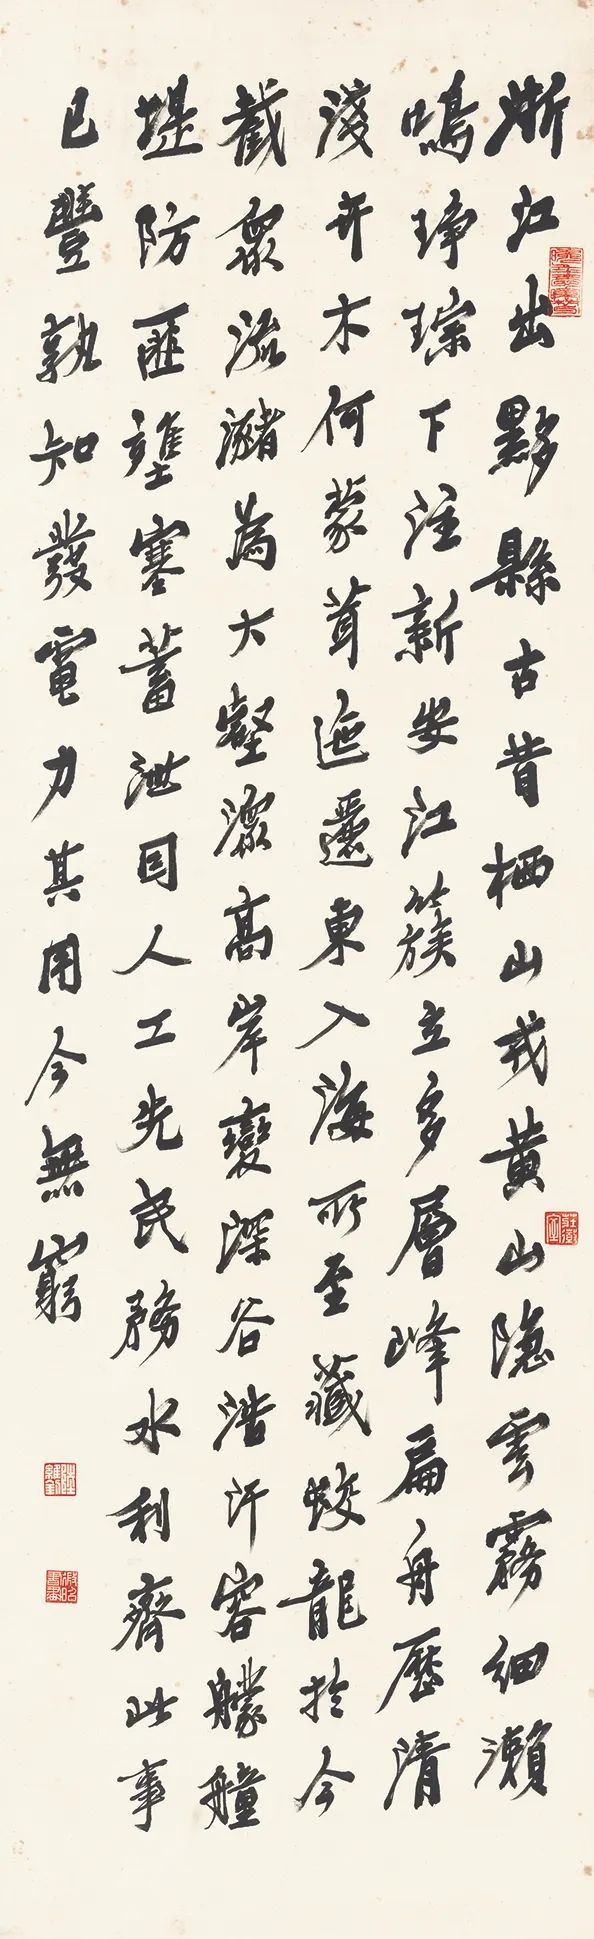 浙江出黟縣古昔栖山戎黄山隐雲霧细瀨
鳴琤琮下注新安江簇立多層峰扁舟歷清
淺卉木何蒙茸迤邐東入海所至藏蛟龍於今
截衆流瀦為大壑深高岸變深谷浩汗容艨艟
堤防匪壅塞蓄泄因人工先民務水利齊此事
已豐孰知發電力其用今無窮